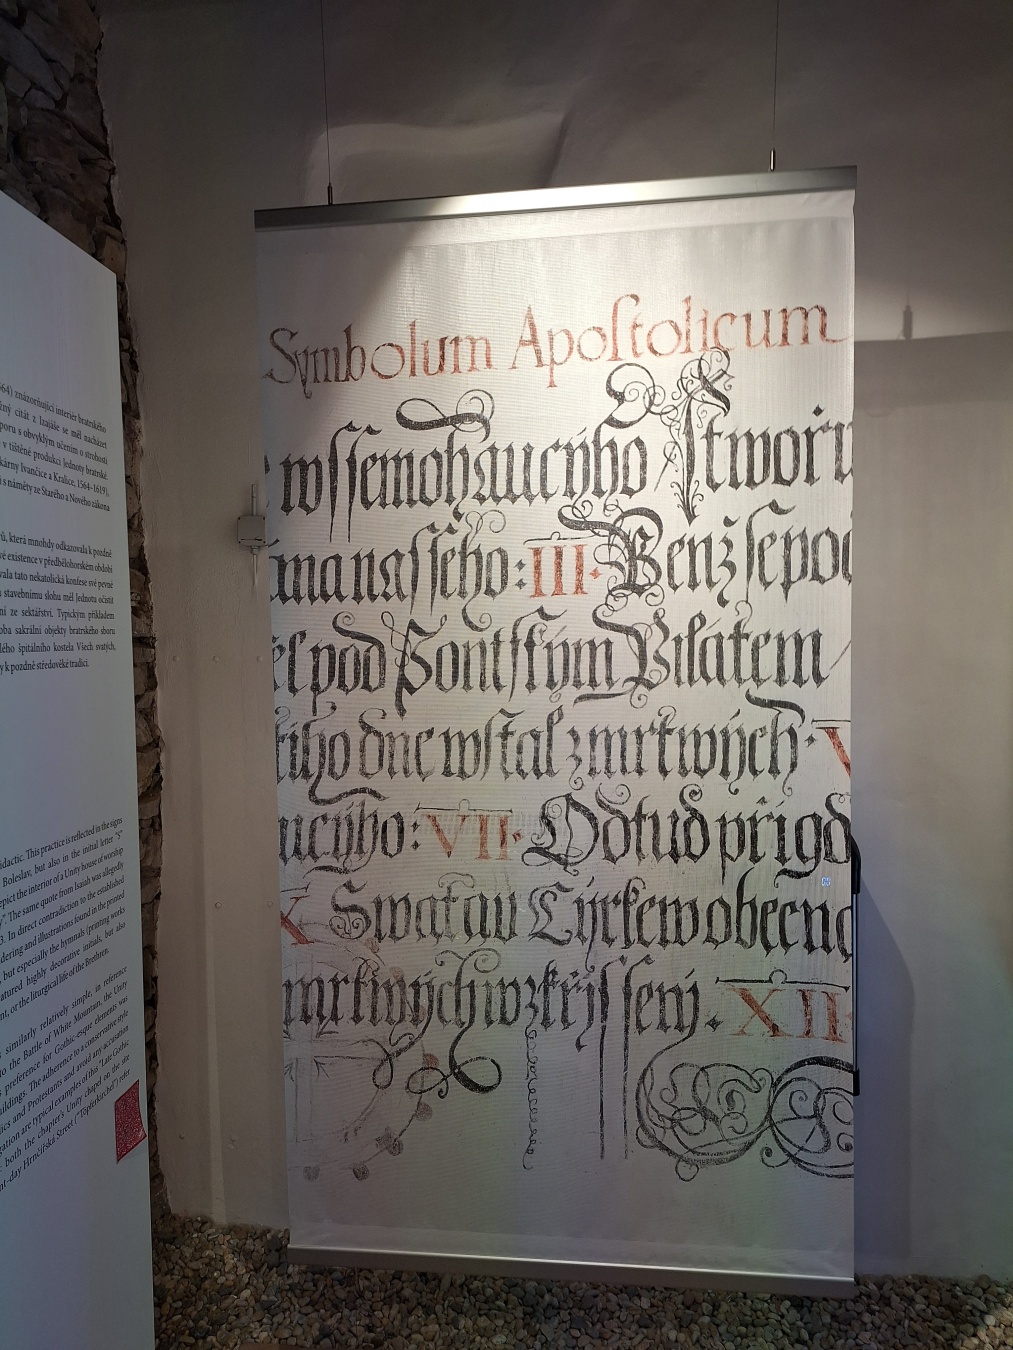 64) znázorňující interiér bratrského
citát z Izajáše se měl nacházet
sporu s obvyklým učením o strohosti
v tištěné produkci Jednoty bratrské.
Ivančice a Kralice, 1564–1619),
s náměty ze Starého a Nového zákona
která mnohdy odkazovala k pozdně
existence v předbělohorském období
tato nekatolická konfese své pevné
stavebnímu slohu měl Jednotu očistit
ze sektářství. Typickým příkladem
sakrální objekty bratrského sboru
špitálního kostela Všech svatých,
k pozdně středověké tradici.
didactic. This practice is reflected in the signs
Boleslav, but also in the initial letter "S"
depict the interior of a Unity house of worship
The same quote from Isaiah was allegedly
3. In direct contradiction to the established
and illustrations found in the printed
but especially the hymnals (printing works
featured highly decorative initials, but also
or the liturgical life of the Brethren.
similarly relatively simple, in reference
to the Battle of White Mountain, the Unity
preference for Gothic-esque elements was
buildings. The adherence to a conservative style
and Protestants and avoid any accusation
are typical examples of this "Late Gothic
both the chapter's Unity chapel on the site
Hrnčířská Street ("Töpferkirchel") refer
Symbolum Apoſtolicum
wſſemohaucýho Stwoř
nanaſſeho: III. Genž ſe poč
pod Pontſkým Pilátem
tiho dne wſtal z mrtwých. V
ucýho: VII. Odtud přigd
X Swatau Cýrkew obecn
mrtwých wzkřjſſenj. XII